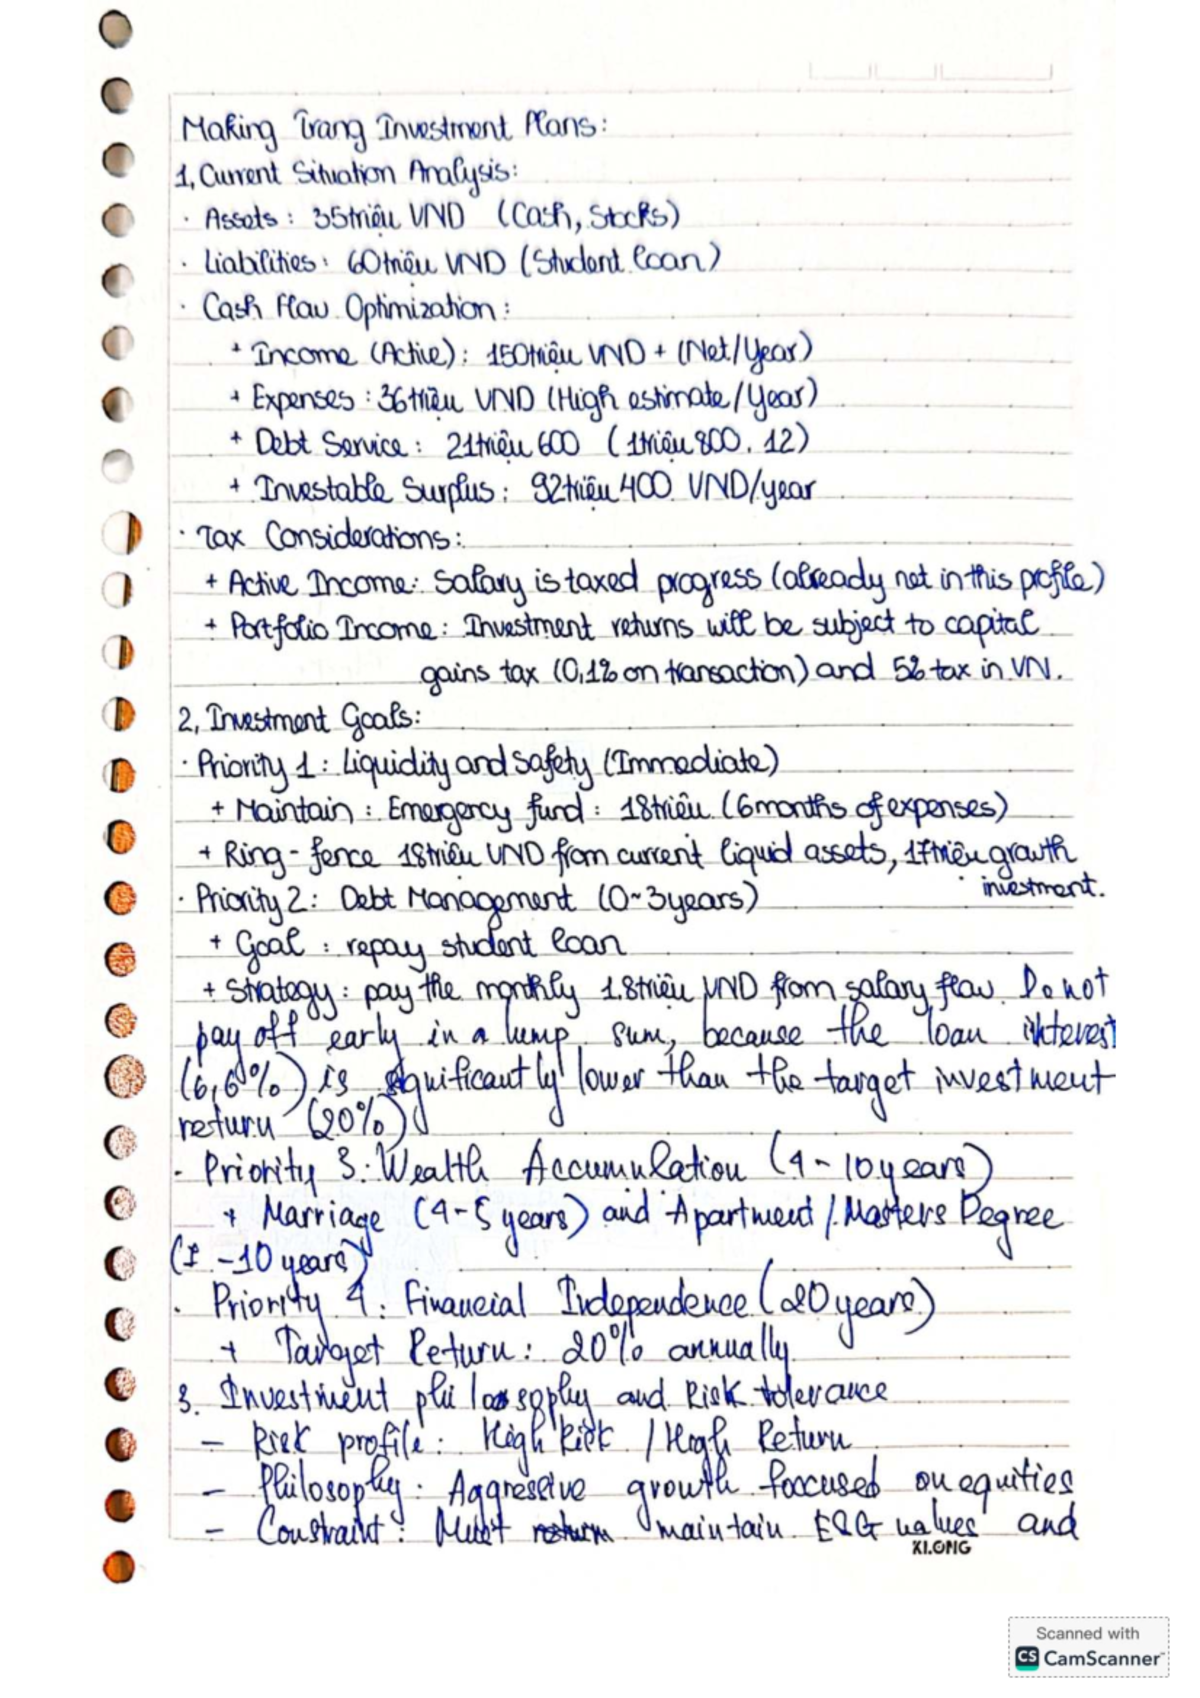 Making Trang Investment Plans:
1, Current Situation Analysis:
· Assets : 35triệu VND (Cash, Stocks)
· Liabilities: 60triệu VND (Student loan)
· Cash Flow Optimization:
+ Income (Active): 150triệu VND + (Net/Year)
+ Expenses : 36triệu VND (High estimate/Year)
+ Debt Service : 21triệu 600 (1triệu 800 . 12)
+ Investable Surplus: 92triệu 400 VND/year
· Tax Considerations:
+ Active Income: Salary is taxed progress (already net in this profile)
+ Portfolio Income: Investment returns will be subject to capital
gains tax (0,1% on transaction) and 5% tax in VN.
2, Investment Goals:
· Priority 1 : Liquidity and Safety (Immediate)
+ Maintain : Emergency fund : 18triệu (6months of expenses)
+ Ring-fence 18triệu VND from current liquid assets, 17triệu growth
investment.
· Priority 2 : Debt Management (0~3years)
+ Goal : repay student loan
+ Strategy : pay the monthly 1.8triệu VND from salary flow. Do not
pay off early in a lump sum, because the loan interest
(6,6%) is significantly lower than the target investment
return (20%)
- Priority 3: Wealth Accumulation (4-10years)
+ Marriage (4-5 years) and Apartment / Masters Degree
-10 years)
· Priority 4: Financial Independence (20years)
+ Target Return: 20% annually
3. Investment philosophy and Risk tolerance
- Risk profile: High Risk / High Return
- Philosophy: Aggressive growth foccused on equities
- Constraint: Must maintain ESG values and
KLONG
Scanned with
CS CamScanner